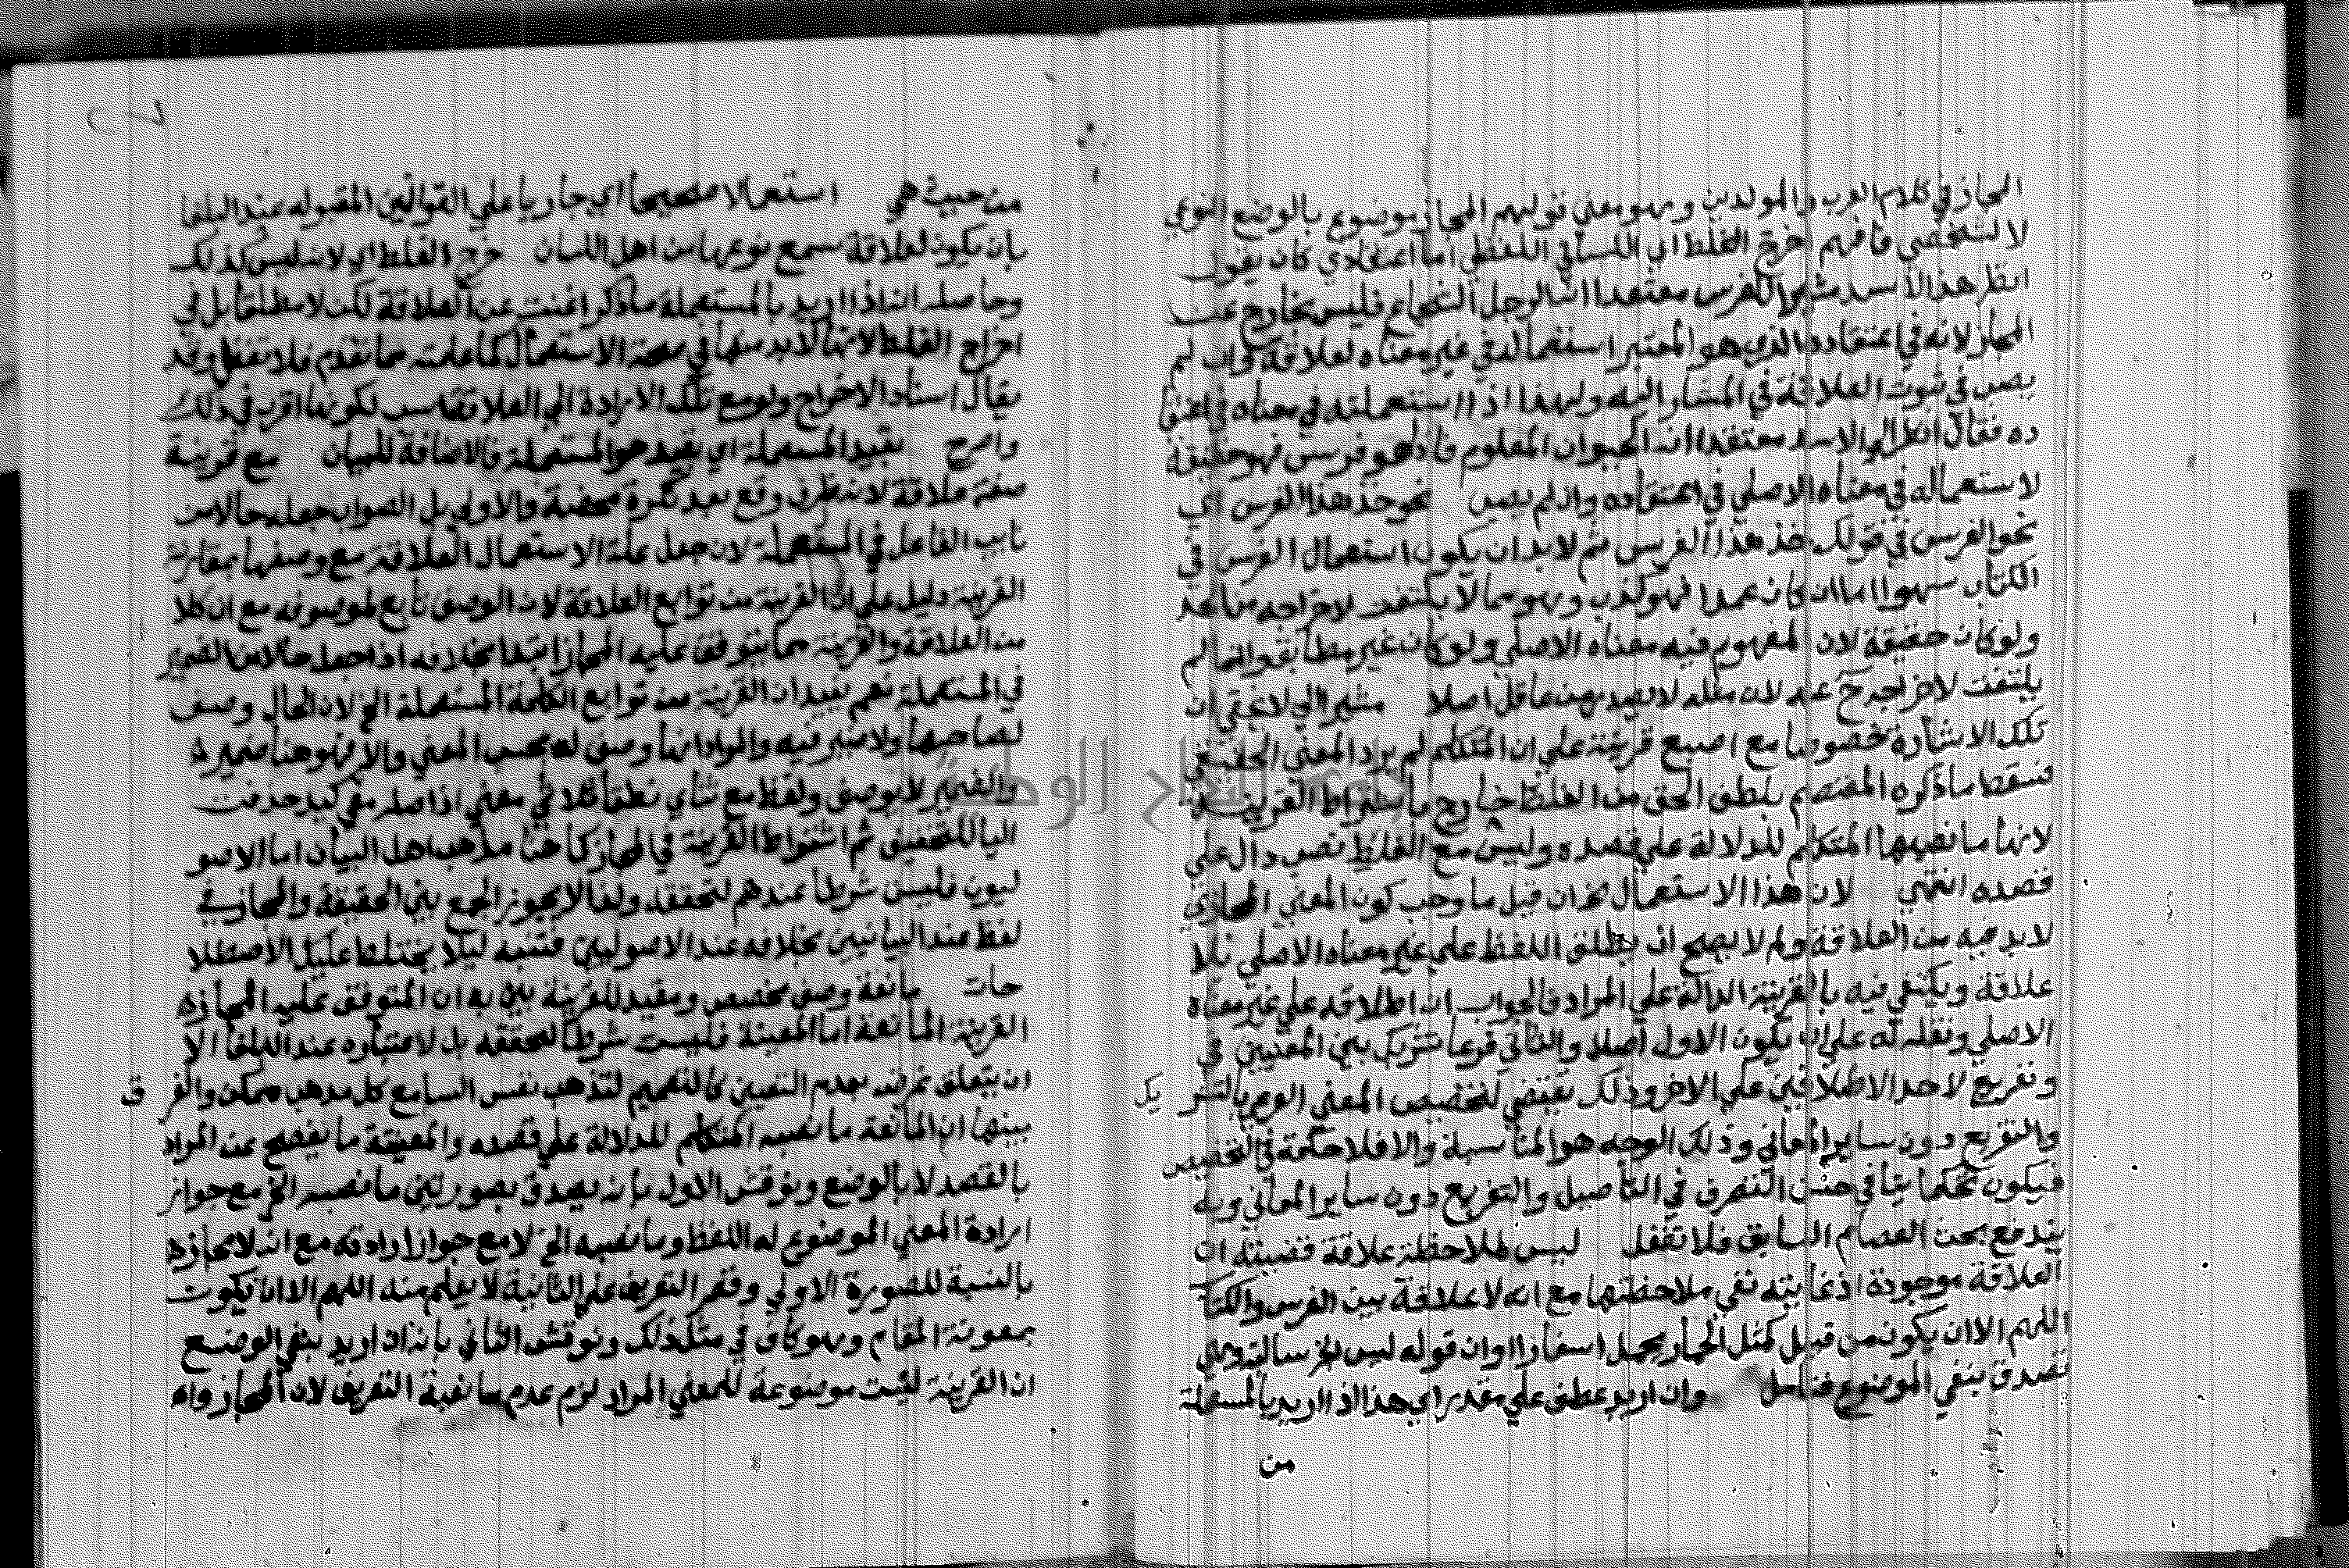 المجاز في كلام العرب والمولدين وهو معنى قولهم المجاز موضوع بالوضع النوعي
لا الشخصي فافهم خرج الغلط اي اللساني اللفظي اما اعتقادي كان يقول
انظر هذا الاسد مشيرا لفرس معتقدا انه الرجل الشجاع فليس بخارج عن
المجاز لانه في اعتقاده الذي هو المعتبر استعماله في غير معناه لعلاقة وان لم
يصب في ثبوت العلاقة في المشار اليه ولهذا اذا استعملته في معناه في اعتقا
ده فقال انظر الي الاسد معتقدا انه الحيوان المعلوم فاذا هو فرس فهو حقيقة
لاستعماله في معناه الاصلي في اعتقاده وان لم يصب نحو خذ هذا الفرس اي
نحو الفرس في قولك خذ هذا الفرس ثم لابد ان يكون استعمال الفرس في
الكتاب سهوا اما ان كان عمدا فهو كذب وهو مما لا يلتفت لاخراجه من الحد
ولو كان حقيقة لان المفهوم فيه معناه الاصلي ولو كان غير مطابق وانما لم
يلتفت لاخراجه ح عنه لان مثله لا يصدر من عاقل اصلا مشيرا الي لا يخفى ان
تلك الاشارة خصوصا مع اصبع قرينة علي ان المتكلم لم يرد المعني الحقيقي
فسقط ما ذكره المعتصم بلطف الحق من الغلط خارج باشتراط القرينة
لانها ما نصبها المتكلم للدلالة علي قصده وليس مع الغلط نصب دال علي
قصده انتهي لان هذا الاستعمال فان قيل ما وجب كون المعني المجازي
لابد فيه من العلاقة ولم لا يصح ان يطلق اللفظ علي غير معناه الاصلي بلا
علاقة ويكتفي فيه بالقرينة الدالة علي المراد فالجواب ان اطلاقه علي غير معناه
الاصلي ونقله له علي ان يكون الاول اصلا والثاني فرعا تشريك بين المعنيين في
وتفريع لاحد الاطلاقين علي الاخر وذلك يقتضي لتخصيص المعني الوجه بالتشريك
والتفريع دون ساير المعاني وذلك الوجه هو المناسبة والا فلا حكمة في التخصيص
فيكون تحكما ينافي حسن التصرف في التاصيل والتفريع دون ساير المعاني وبه
يندفع بحث العصام السابق فلا تغفل ليس لملاحظة علاقة قضيته ان
العلاقة موجودة اذ غايته نفي ملاحظتها مع انه لا علاقة بين الفرس والكتاب
اللهم الا ان يكون من قبيل كمثل الحمار يحمل اسفارا وان قوله ليس الخ سالبة وهي
تصدق بنفي الموضوع فتامل وان اريد عطف علي مقدر اي هذا اذا اريد بالمستعملة
من
من حيث هي استعمالا صحيحا اي جاريا علي القوانين المقبوله عند البلغا
بان يكون لعلاقة سمع نوعها من اهل اللسان خرج الغلط اي لانه ليس كذلك
وحاصله انه اذا اريد بالمستعملة ما ذكر اغنت عن العلاقة لكن لا مطلقا بل في
اخراج الغلط لانها لابد منها في صحة الاستعمال كما علمت مما تقدم فلا تغفل وقد
يقال اسناد الاخراج ولو مع تلك الارادة الي العلاقة انسب لكونها اقرب في ذلك
واصرح بقيد المستعملة اي بقيد هو المستعملة فالاضافة للبيان مع قرينة
صفة علاقة لانه ظرف وقع بعد نكرة محضة والاولى بل الصواب جعله حالا من
نايب الفاعل في المستعملة لان جعل علة الاستعمال العلاقة مع وصفها بمقارنة
القرينة دليل علي ان القرينة من توابع العلاقة لان الوصف تابع لموصوفه مع ان كلا
من العلاقة والقرينة مما يتوقف عليه المجاز ابتدا بخلافه اذا جعل حالا من الضمير
في المستعملة نعم يفيد ان القرينة من توابع الكلمة المستعملة الخ لان الحال وصف
لصاحبها ولا ضير فيه والمراد انها وصف له بحسب المعني والا فهو هنا ضمير
والضمير لا يوصف
اليا للتخفيف ثم اشتراط القرينة في المجاز كما هنا مذهب اهل البيان اما الاصو
ليون فليس شرطا عندهم لتحققه ولذا لا يجوز الجمع بين الحقيقة والمجاز في
لفظ عند البيانيين بخلافه عند الاصوليين فتنبه ليلا يختلط عليك الاصطلا
حات مانعة وصف مخصص ومقيد للقرينة بين به ان المتوقف عليه المجاز
القرينة المانعة اما المعينة فليست شرطا لتحققه بل لاعتباره عند البلغا الا
ان يتعلق غرض بعدم التعيين كالتعميم لتذهب نفس السامع كل مذهب ممكن والفرق
بينها ان المانعة ما نصبه المتكلم للدلالة علي قصده والمعينة ما يفصح عن المراد
بالقصد لا بالوضع ونوقش الاول بانه يصدق بصورتين ما نصبه الخ مع جواز
ارادة المعني الموضوع له اللفظ وما نصبه الخ لا مع جواز ارادته مع انه لا مجاز
بالنسبة للصورة الاولي وقصر التعريف علي الثانية لا يعلم منه اللهم الا ان يكون
بمعونة المقام وهو كاف في مثل ذلك ونوقش الثاني بانه ان اريد بنفي الوضع
ان القرينة ليست موضوعة للمعني المراد لزم عدم مانعية التعريف لان المجاز